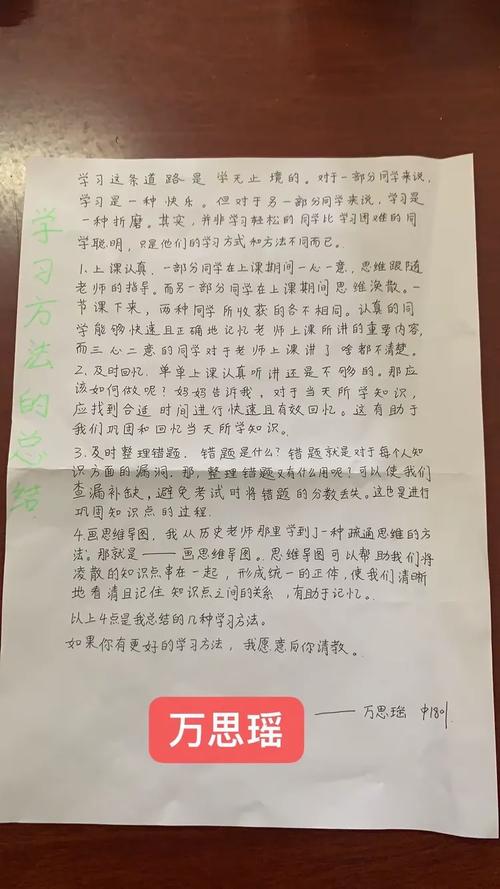 学习方法的总结
学习这条道路是学无止境的。对于一部分同学来说，
学习是一种快乐。但对于另一部分同学来说，学习是
一种折磨。其实，并非学习轻松的同学比学习困难的同
学聪明，只是他们的学习方式和方法不同而已。
1.上课认真，一部分同学在上课期间一心一意，思维跟随
老师的指导。而另一部分同学在上课期间思维涣散。一
节课下来，两种同学所收获的各不相同。认真的同
学能够快速且正确地记忆老师上课所讲的重要内容，
而三心二意的同学对于老师上课讲了啥都不清楚。
2.及时回忆.单单上课认真听讲还是不够的。那应
该如何做呢？妈妈告诉我，对于当天所学知识，
应找到合适时间进行快速且有效回忆。这有助于
我们巩固和回忆当天所学知识。
3.及时整理错题.错题是什么？错题就是对于每个人知
识方面的漏洞.那，整理错题又有什么用呢？可以使我们
查漏补缺，避免考试时将错题的分数丢失。这也是进行
巩固知识点的过程.
4.画思维导图，我从历史老师那里学到了一种疏通思维的方
法。那就是——画思维导图。思维导图可以帮助我们将
凌散的知识点串在一起，形成统一的正体，使我们清晰
地看清且记住知识点之间的关系，有助于记忆。
以上4点是我总结的几种学习方法。
如果你有更好的学习方法，我愿意向你请教。
——万思瑶 中1801
万思瑶